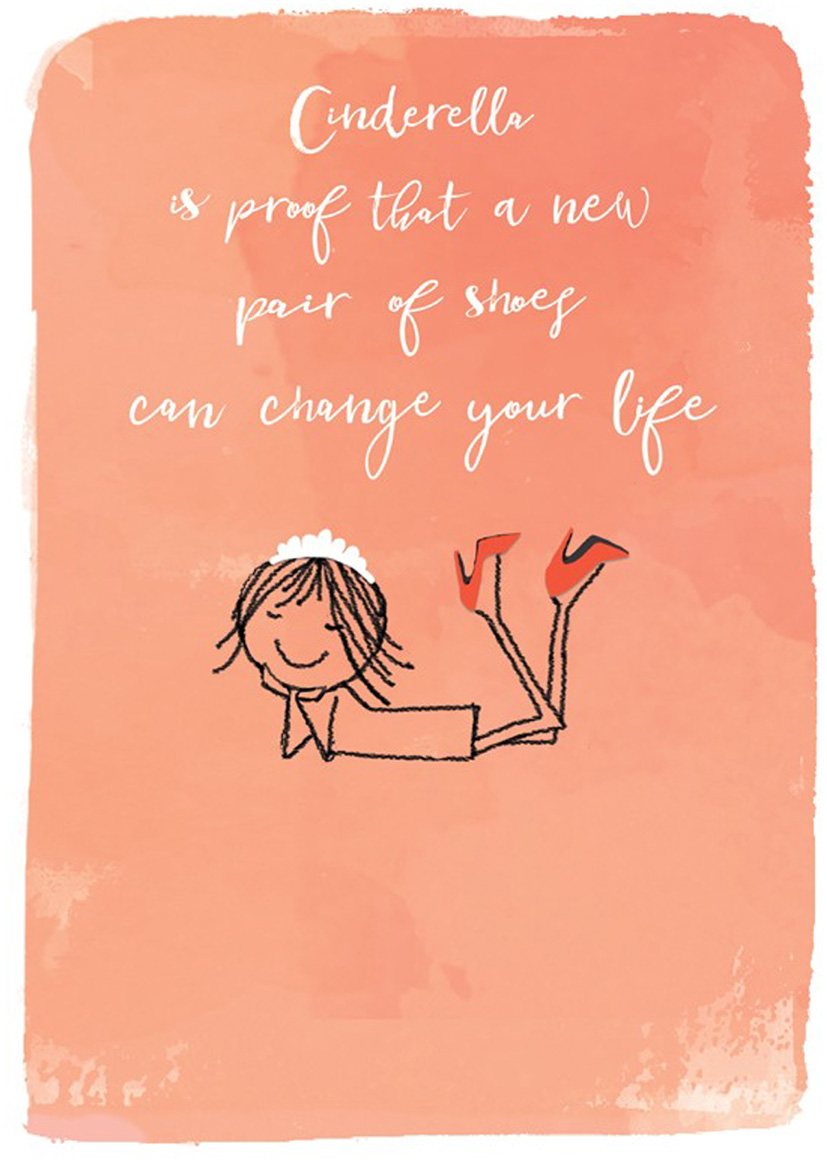 Cinderella
is proof that a new
pair of shoes
can change your life